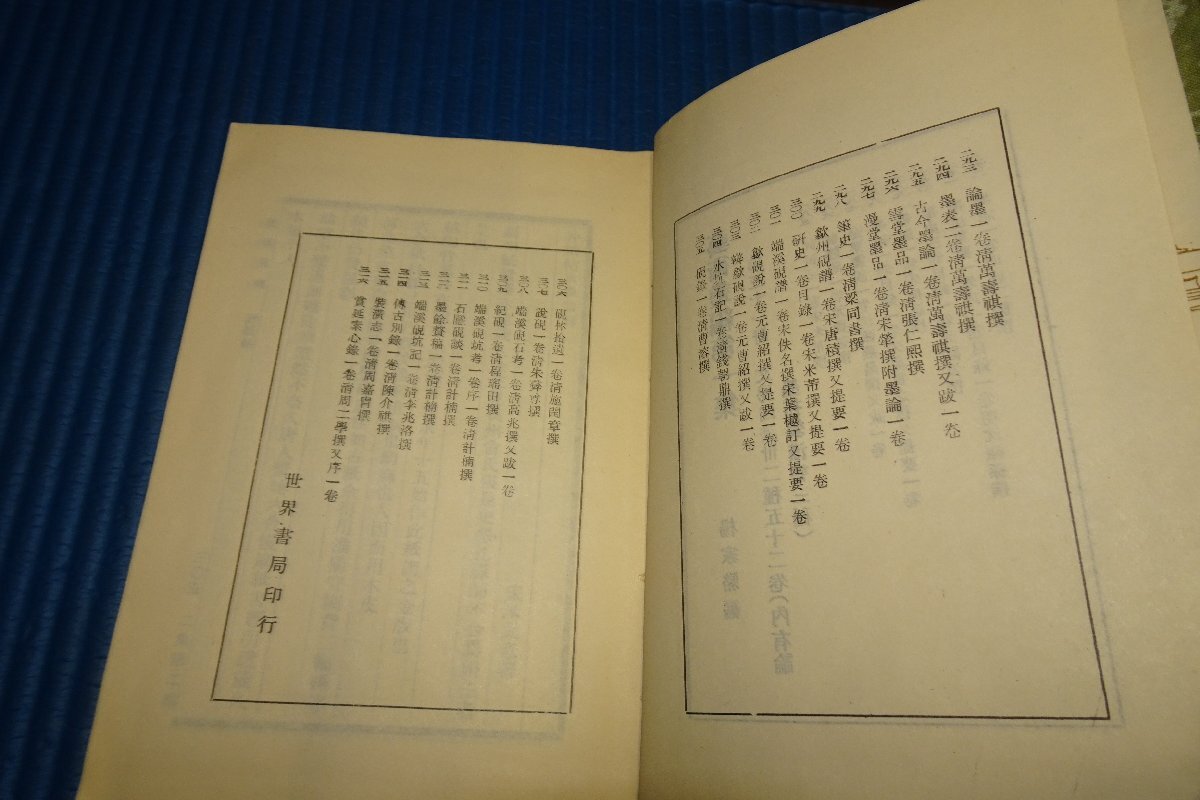 二九三 論墨一卷清萬壽祺撰
二九四 墨表二卷清萬壽祺撰
二九五 古今墨論一卷清萬壽祺撰又跋一卷
二九六 雪堂墨品一卷清張仁熙撰
二九七 漫堂墨品一卷清宋犖撰附墨論一卷
二九八 筆史一卷清梁同書撰
二九九 歙州硯譜一卷宋唐積撰又提要一卷
三〇〇 硏史一卷目錄一卷宋米芾撰又提要一卷
三〇一 端溪硯譜一卷宋佚名撰宋葉樾訂又提要一卷
三〇二 歙硯說一卷元曹紹撰又提要一卷
三〇三 辨歙硯說一卷元曹紹撰又跋一卷
三〇四 水坑石記一卷清錢朝鼎撰
三〇五 硯錄一卷清曹溶撰
三〇六 硯林拾遺一卷清施閏章撰
三〇七 說硯一卷清朱彝尊撰
三〇八 端溪硯石考一卷清高兆撰又跋一卷
三〇九 紀硯一卷清程瑤田撰
三一〇 端溪硯坑考一卷序一卷清計楠撰
三一一 石隱硯談一卷清計楠撰
三一二 墨餘贅稿一卷清計楠撰
三一三 端溪硯坑記一卷清李兆洛撰
三一四 傳古別錄一卷清陳介祺撰
三一五 裝潢志一卷清周嘉冑撰
三一六 賞延素心錄一卷清周二學撰又序一卷
世界書局印行